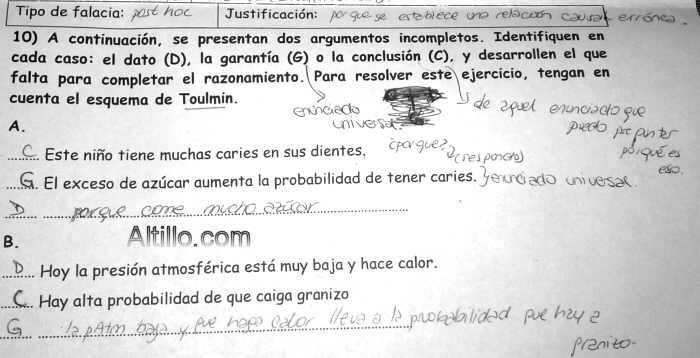 Tipo de falacia: post hoc Justificación: porque se establece una relación causal errónea.
10) A continuación, se presentan dos argumentos incompletos. Identifiquen en
cada caso: el dato (D), la garantía (G) o la conclusión (C), y desarrollen el que
falta para completar el razonamiento. Para resolver este ejercicio, tengan en
cuenta el esquema de Toulmin.
enunciado universal.
de aquel enunciado que puedo preguntar porqué es eso.
A.
C. Este niño tiene muchas caries en sus dientes. ¿por qué?
(responde)
G. El exceso de azúcar aumenta la probabilidad de tener caries. enunciado universal.
D porque come mucho azúcar
Altillo.com
B.
D Hoy la presión atmosférica está muy baja y hace calor.
C. Hay alta probabilidad de que caiga granizo
G la pAtm baja y que haga calor lleva a la probabilidad que hay a
granizo.